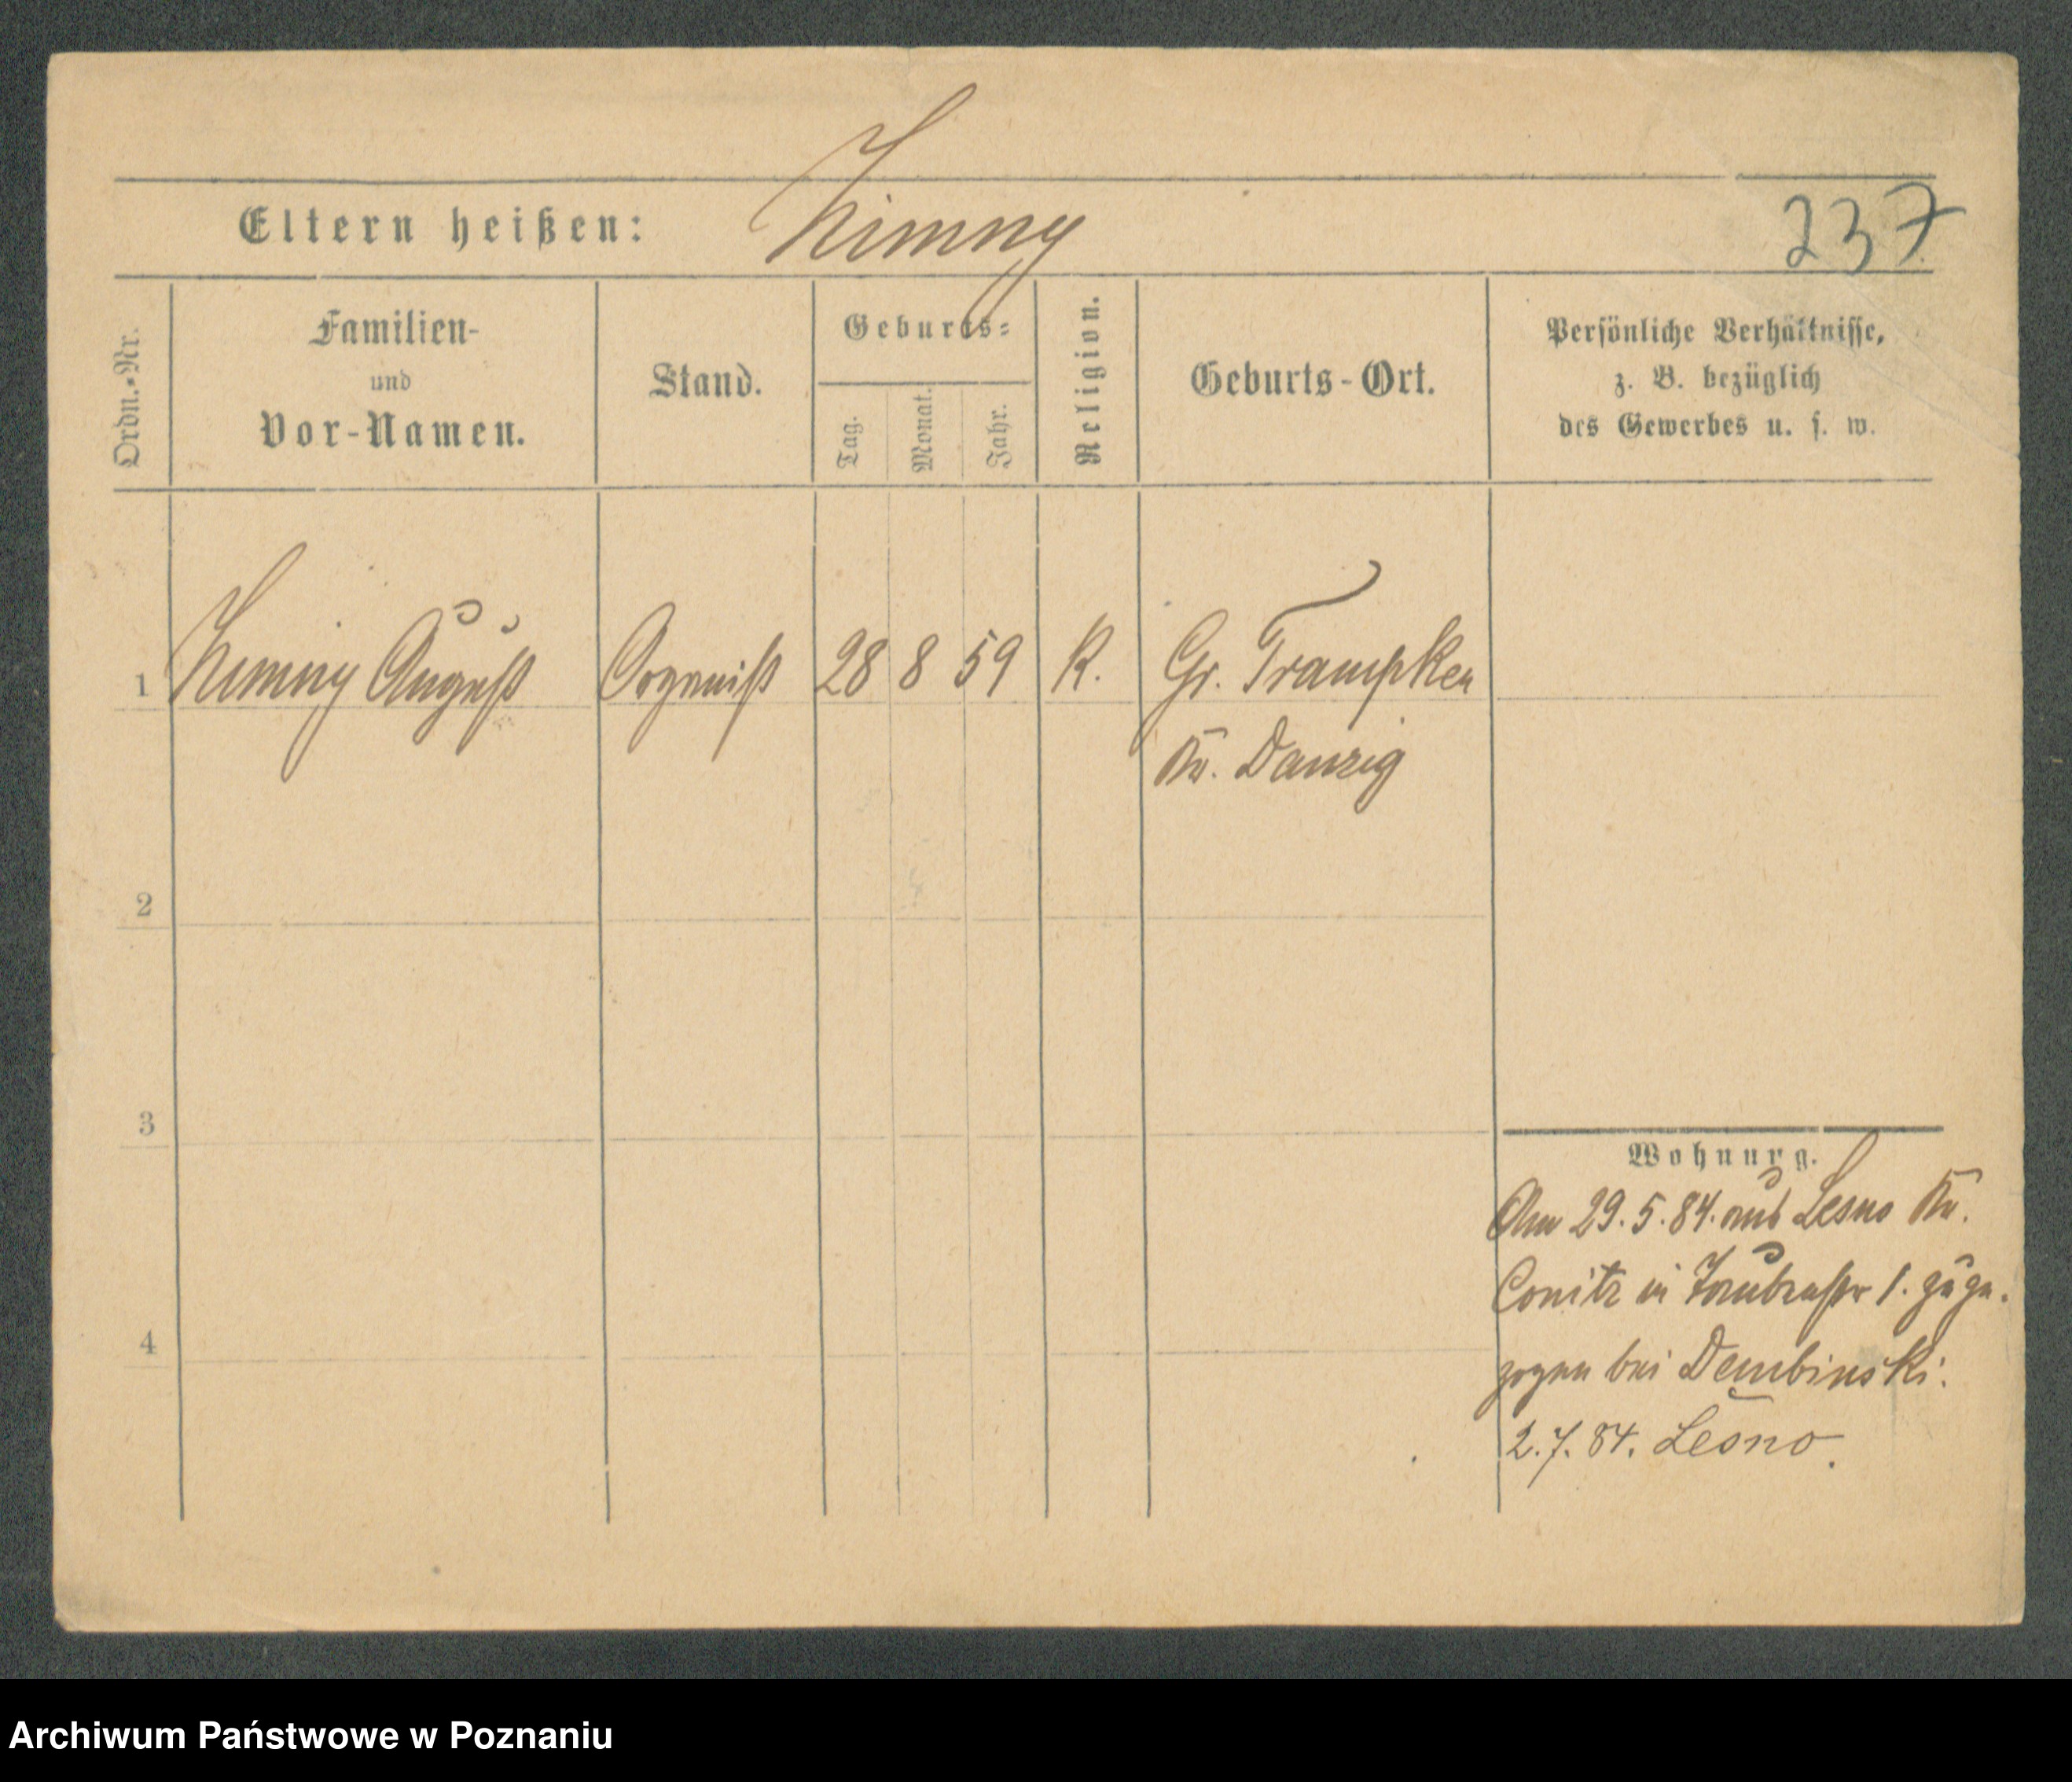 Eltern heißen: Zimny
237
Ordn.-Nr.
Familien-
und
Vor-Namen.
Stand.
Geburts-
Tag.
Monat.
Jahr.
Religion.
Geburts-Ort.
Persönliche Verhältnisse,
z. B. bezüglich
des Gewerbes u. s. w.
1 Zimny August Organist 28 8 59 K. Gr. Trampken
Kr. Danzig
2
3
4
Wohnung.
Am 29.5.84. aus Lesno Kr.
Conitz in Taubenstr 1. zuge-
zogen bei Dembinski.
2.7.84. Lesno.
Archiwum Państwowe w Poznaniu